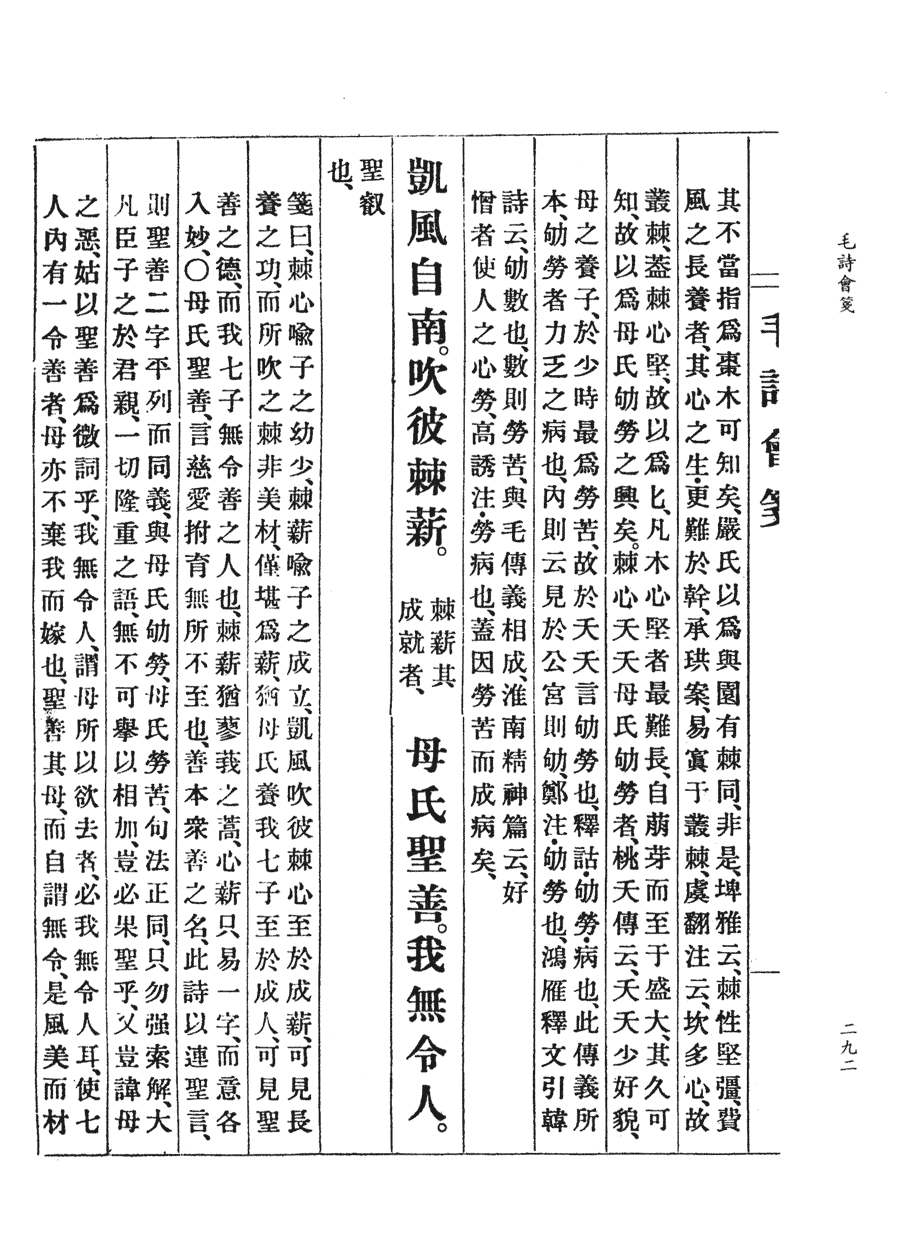 毛詩會箋
二九二
毛詩會箋
其不當指爲棗木可知矣、嚴氏以爲與園有棘同、非是、埤雅云、棘性堅彊、費
風之長養者、其心之生・更難於幹、承珙案、易寘于叢棘、虞翻注云、坎多心、故
叢棘、蓋棘心堅、故以爲匕、凡木心堅者最難長、自萌芽而至于盛大、其久可
知、故以爲母氏劬勞之興矣。棘心夭夭母氏劬勞者、桃夭傳云、夭夭少好貌、
母之養子、於少時最爲勞苦、故於夭夭言劬勞也、釋詁・劬勞・病也、此傳義所
本、劬勞者力乏之病也、內則云見於公宮則劬、鄭注・劬勞也、鴻雁釋文引韓
詩云、劬數也、數則勞苦、與毛傳義相成、淮南精神篇云、好
憎者使人之心勞、高誘注・勞病也、蓋因勞苦而成病矣、
凱風自南。吹彼棘薪。
棘薪其
成就者、
母氏聖善。我無令人。
聖叡
也、
箋曰、棘心喩子之幼少、棘薪喩子之成立、凱風吹彼棘心至於成薪、可見長
養之功、而所吹之棘非美材、僅堪爲薪、猶母氏養我七子至於成人、可見聖
善之德、而我七子無令善之人也、棘薪猶蓼莪之蒿、心薪只易一字、而意各
入妙、〇母氏聖善、言慈愛拊育無所不至也、善本衆善之名、此詩以連聖言、
則聖善二字平列而同義、與母氏劬勞、母氏勞苦、句法正同、只勿强索解、大
凡臣子之於君親、一切隆重之語、無不可擧以相加、豈必果聖乎、又豈諱母
之惡、姑以聖善爲微詞乎、我無令人、謂母所以欲去者、必我無令人耳、使七
人內有一令善者、母亦不棄我而嫁也、聖善其母、而自謂無令、是風美而材